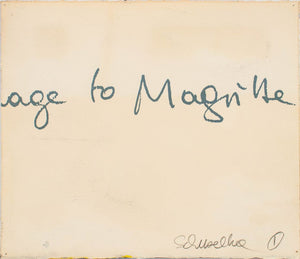 age to Magritte
①